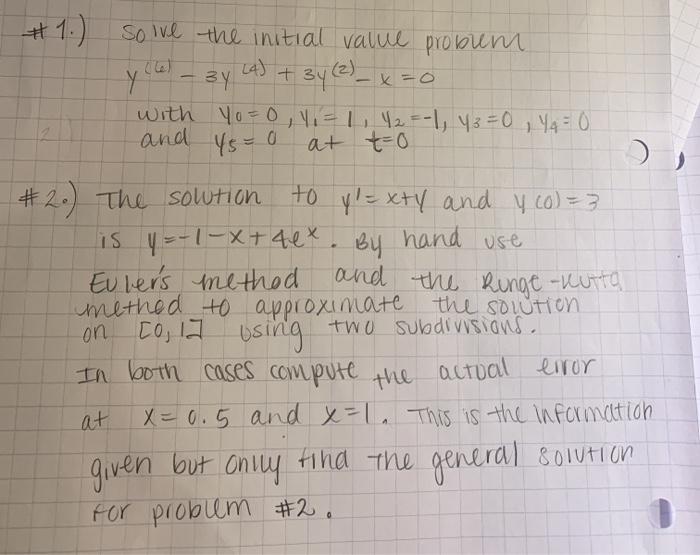 #1.) Solve the initial value problem
y^(6) - 3y^(4) + 3y^(2) - x = 0
with y0 = 0, y1 = 1, y2 = -1, y3 = 0, y4 = 0
and y5 = 0 at t=0
#2.) The solution to y' = x+y and y(0) = 3
is y = -1-x+4e^x. By hand use
Euler's method and the Runge-Kutta
method to approximate the solution
on [0,1] using two subdivisions.
In both cases compute the actual error
at x = 0.5 and x=1. This is the information
given but only find the general solution
for problem #2.